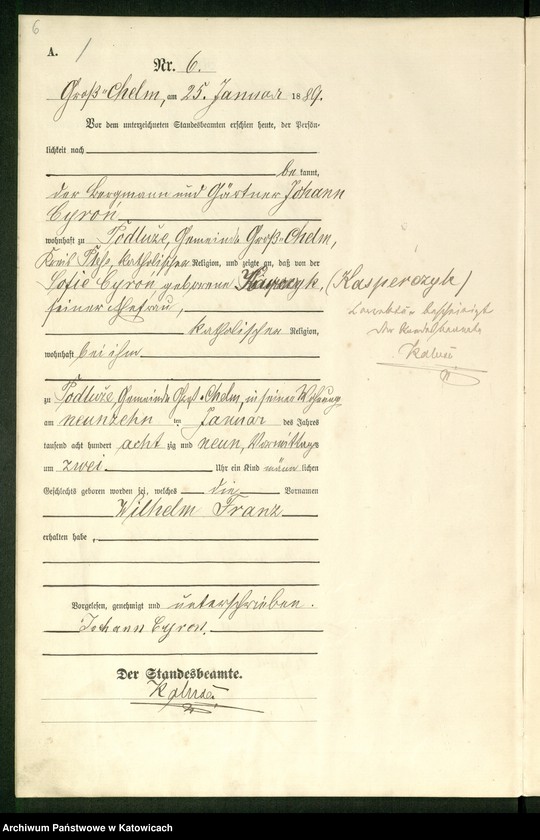 6
A. 1
Nr. 6.
Groß-Chelm, am 25. Januar 1889.
Vor dem unterzeichneten Standesbeamten erschien heute, der Persön-
lichkeit nach
be kannt,
der Bergmann und Gärtner Johann
Cyroń
wohnhaft zu Podluże, Gemeinde Groß-Chelm,
Kreis Pleß, katholischer Religion, und zeigte an, daß von der
Sofie Cyron, geborene (Kasperczyk)
seiner Ehefrau,
katholischer Religion,
wohnhaft bei ihm
zu Podluże, Gemeinde Groß-Chelm, in seiner Wohnung
am neunzehn ten Januar des Jahres
tausend acht hundert acht zig und neun, Vormittags
um zwei Uhr ein Kind männ lichen
Geschlechts geboren worden sei, welches die Vornamen
Wilhelm Franz
erhalten habe,
Vorgelesen, genehmigt und unterschrieben.
Johann Cyron.
Der Standesbeamte.
Der Standesbeamte
Archiwum Państwowe w Katowicach